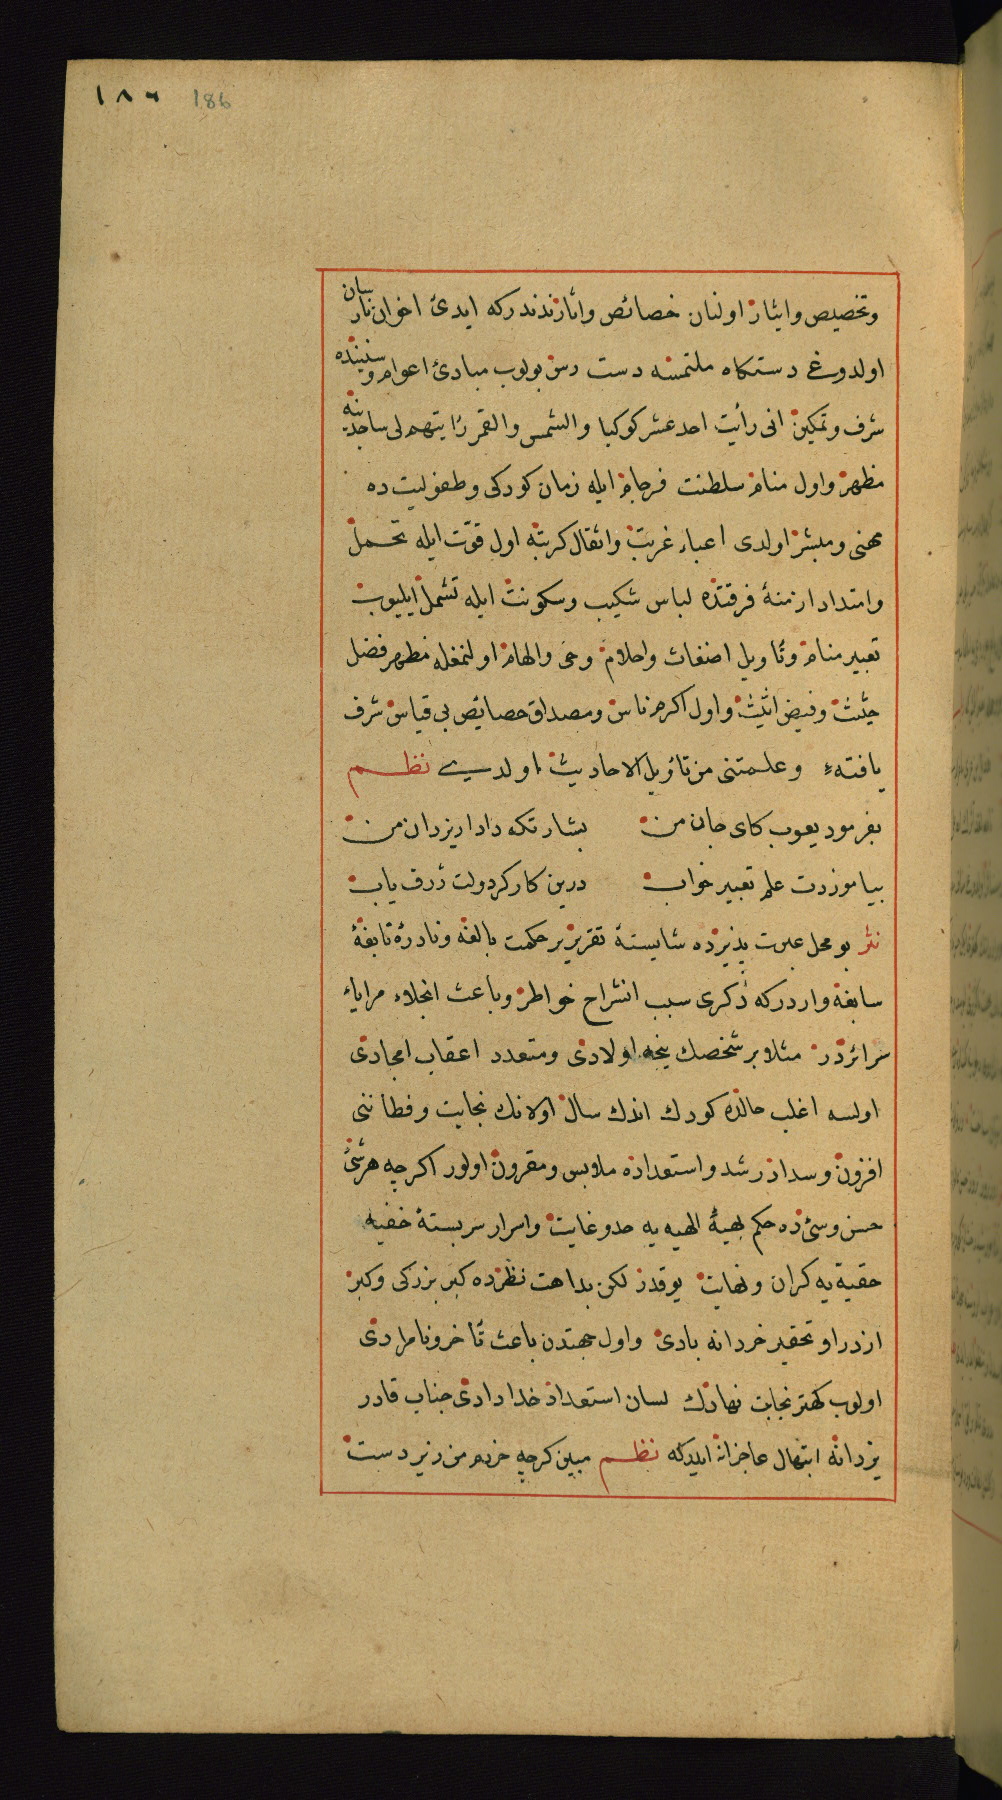 ١٨٦ 186
وتخصيص وايثار اولنان خصائص واثارندندركه ايدى اخوان نار بيان
اولدوغى دستكاه ملتمسنه دست رس بولوب مبادئ اعوام وسنينده
شرف وتمكين انى رأيت احد عشر كوكبا والشمس والقمر رايتهم لى ساجدينه
مظهر واول منام سلطنت فرجام ايله زمان كودكى وطفوليت ده
مهنى ومبشر اولدى اعباء غربت واثقال كربته اول قوّت ايله تحمل
وامتداد ازمنهٔ فرقتده لباس شكيب وسكونت ايله تشمل ايليوب
تعبير منام وتأويل اضغاث واحلام وحى والهام اولنمغله مظهر فضل
حثيث وفيض اثيث واول اكرم ناس ومصداق حصائص بى قياس شرف
يافتهء وعلمتنى من تأويل الاحاديث اولدى نظم
بفرمود يعوب كاى جان من بشارتكه دادار يزدان من
بياموزدت علم تعبير خواب درين كار كردولت ژرف ياب
نثر بو محل عبرت پذيرده شايستهٔ تقرير بر حكمت بالغه ونادرهٔ تابغهٔ
سابغه واردركه ذكرى سبب انشراح خواطر وباعث انجلاء مراياء
سرائردر مثلا بر شخصك نيجه اولادى ومتعدد اعقاب امجادى
اولسه اغلب حالده كودك اندك سال اولانك نجابت وفطانتى
افزون وسداد رشد واستعداده ملابس ومقرون اولور اكرچه هر شئ
حسن وسئ ده حكم بهيهٔ الهيه يه حد وغايت واسرار سربستهٔ خفيه
حقيه يه كران ونهايت يوقدر لكن بداهت نظرده كبر بزركى وكبر
ازدرا وتحقير خردانه بادى واول جهتدن باعث تأخر ونامرادى
اولوب كهتر نجابت نهادك لسان استعداد خدادادى جناب قادر
يزدانه ابتهال عاجزانه ايدركه نظم مبين كرچه خردم من زير دست